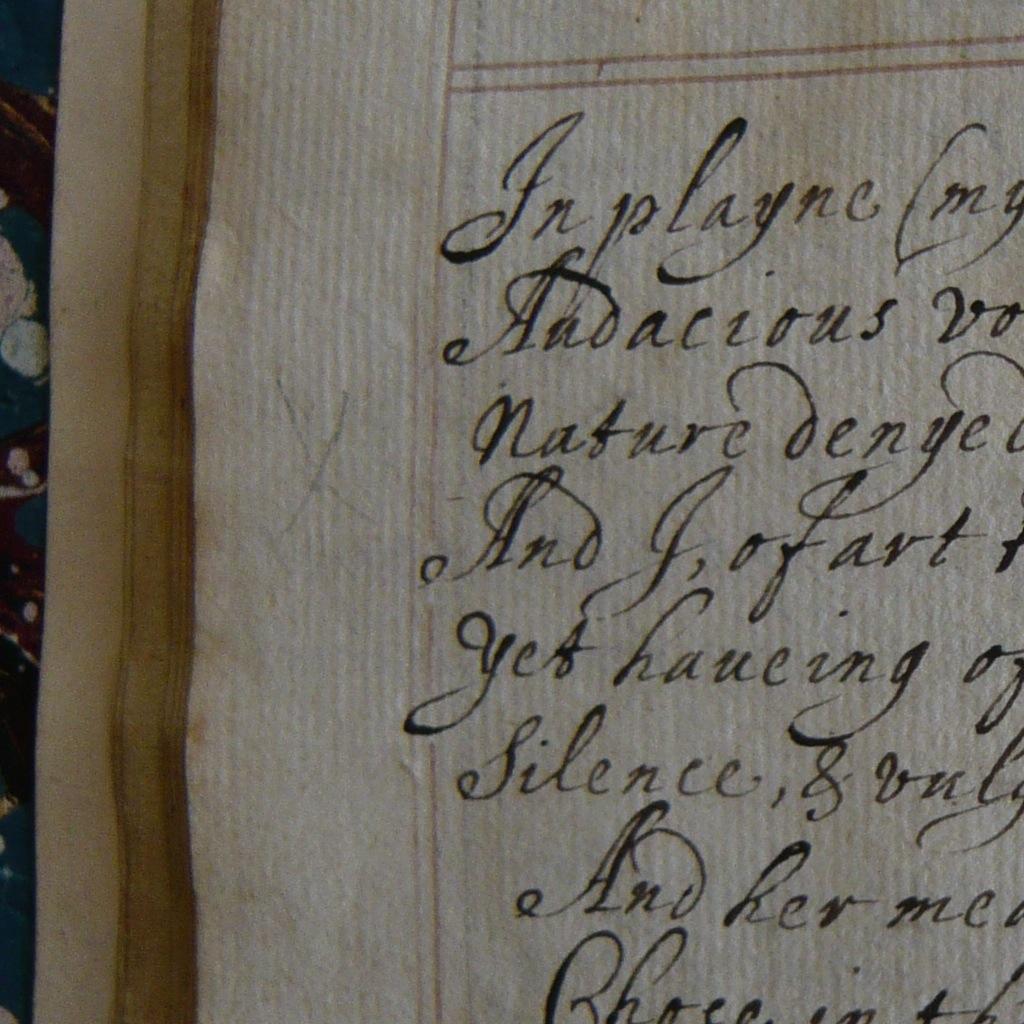 In playne (my
Audacious vo
Nature denyed
And I, of art
Yet haveing of
Silence, & vulg
And her mea
Chose in th